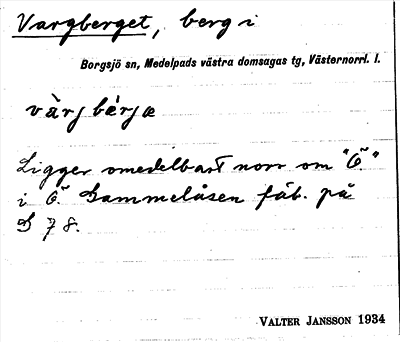 Vargberget, berg i
Borgsjö sn, Medelpads västra domsagas tg, Västernorrl. l.
vàrj bérjæ
Ligger omedelbart norr om "Ö."
i Ö. Gammelåsen fäb. på
G 78.
VALTER JANSSON 1934